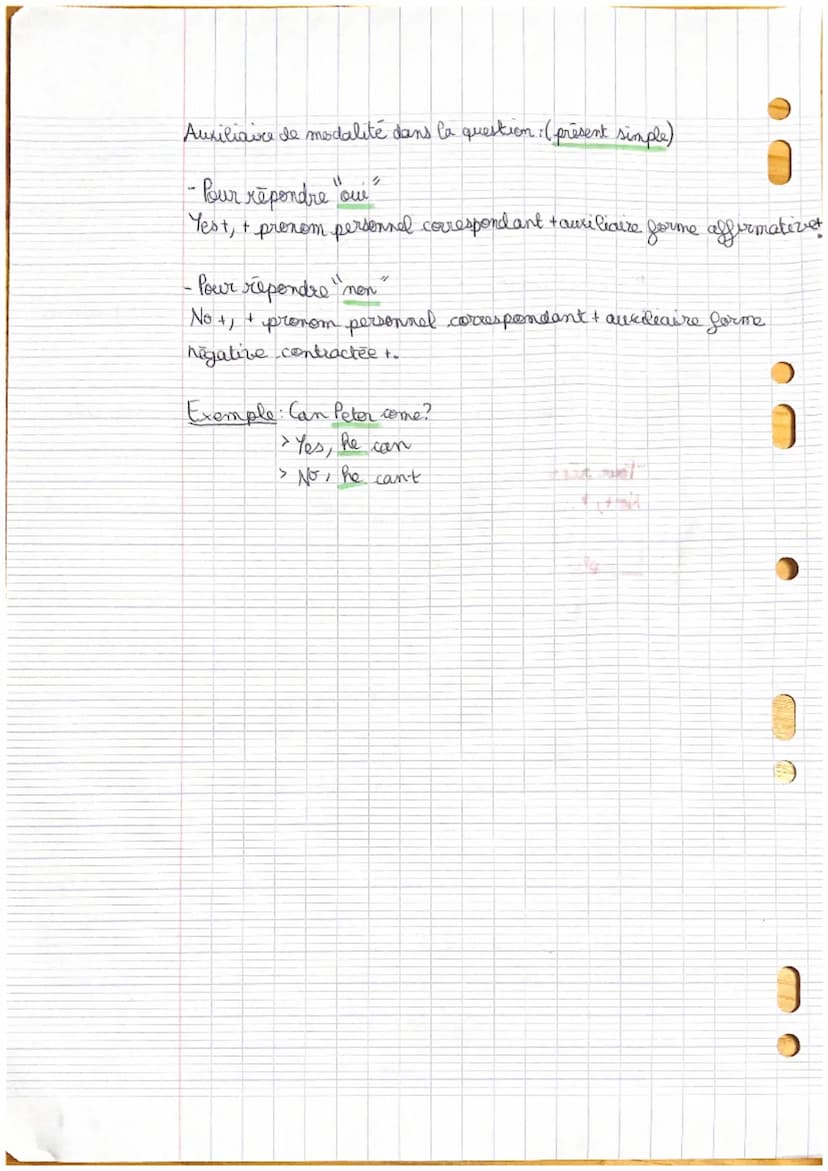 Auxiliaire de modalité dans la question : (présent simple)
- Pour répondre "oui"
Yes +, + prenom personnel correspondant + auxiliaire forme affirmative +.
- Pour répondre "non"
No +, + prenom personnel correspondant + auxiliaire forme
négative contractée +.
Exemple : Can Peter come?
> Yes, he can
> No, he can't